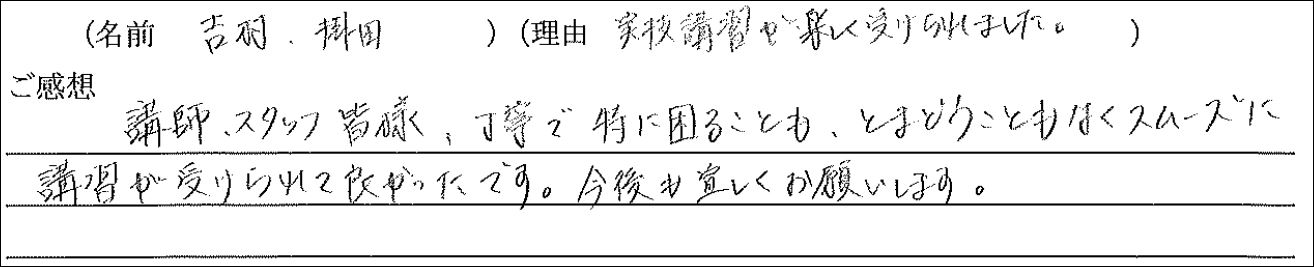 (名前 吉羽、掛田 ) (理由 実技講習が楽しく受けられました。 )
ご感想
講師、スタッフ皆様、丁寧で特に困ることも、とまどうこともなくスムーズに
講習が受けられて良かったです。今後も宜しくお願いします。